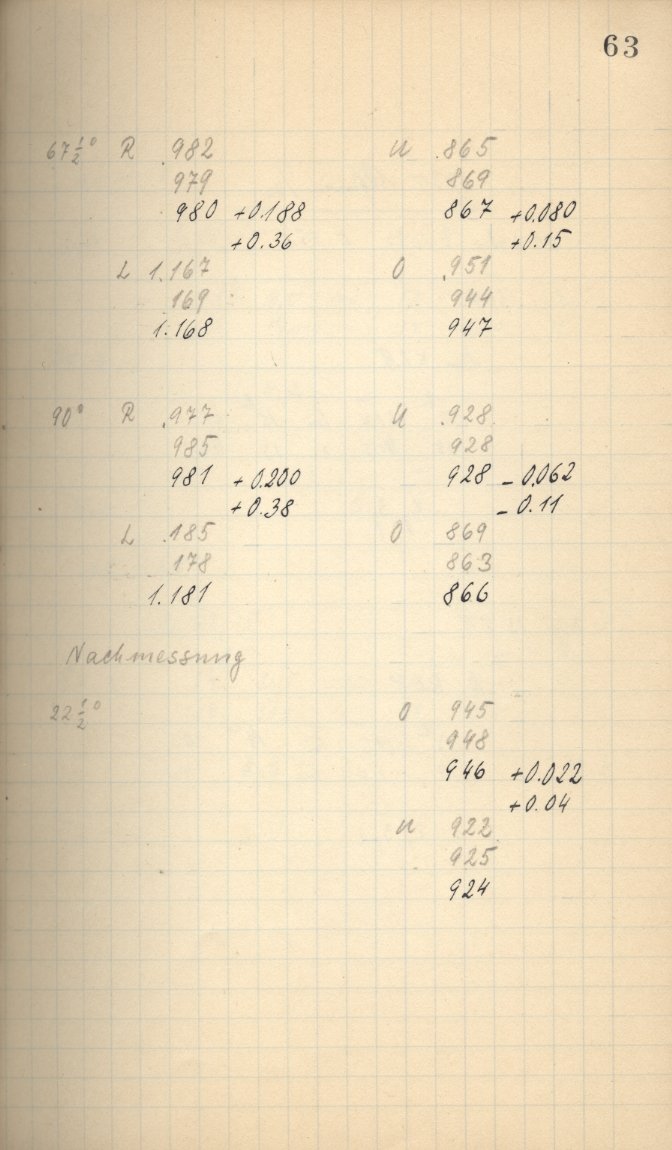 63
67½° R .982 U .865
979 869
980 +0.188 867 +0.080
+0.36 +0.15
L 1.167 O .951
169 944
1.168 947
90° R .977 U .928
985 928
981 +0.200 928 -0.062
+0.38 -0.11
L .185 O 869
178 863
1.181 866
Nachmessung
22½° O 945
948
946 +0.022
+0.04
U 922
925
924